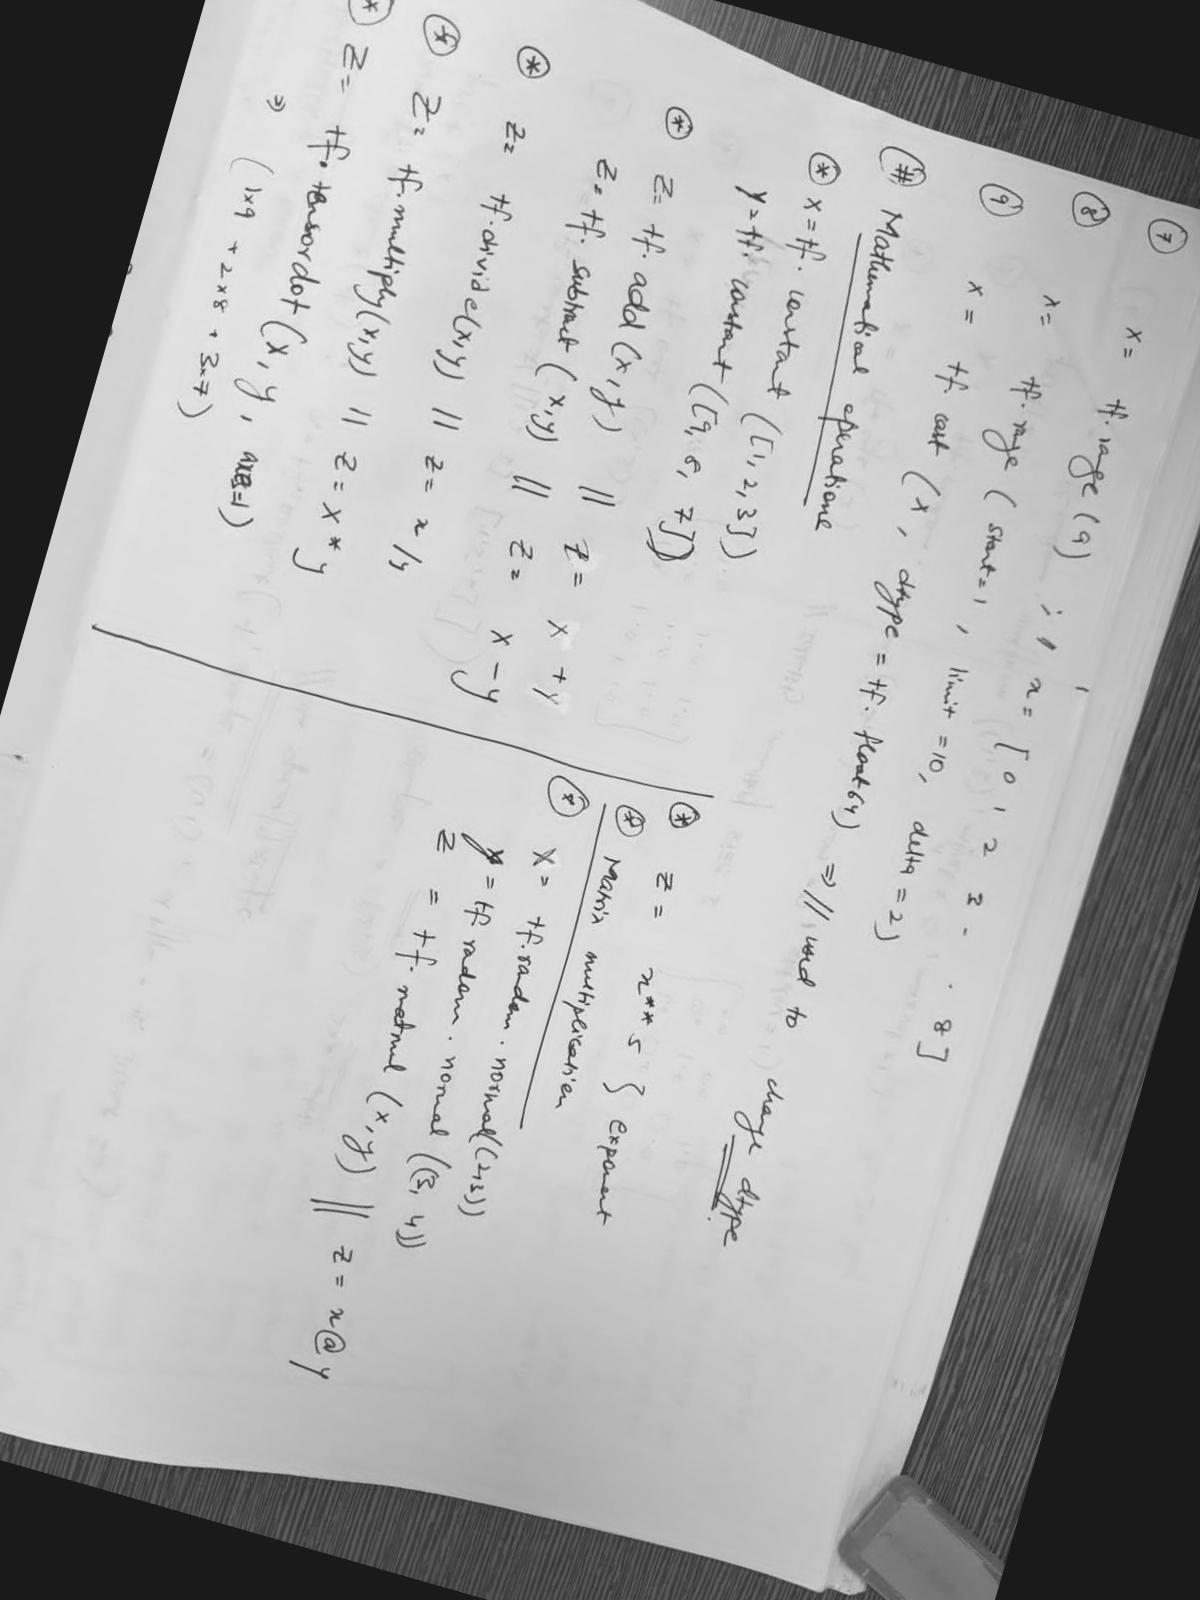 ⑦ x = tf.range(9) ; // x = [0 1 2 3 - . 8]
⑧ x = tf.range (start=1, limit=10, delta=2)
⑨ x = tf.cast (x, dtype = tf.float64) => // used to change dtype
(#) Mathematical operations
(*) x = tf.constant ([1,2,3])
y = tf.constant ([9,8,7])
(*) z = tf.add(x,y) || z = x + y
z = tf.subtract (x,y) || z = x - y
(*) z = tf.divide(x,y) || z = x/y
(*) z = tf.multiply(x,y) || z = x * y
(*) z = tf.tensordot (x, y, axes=1)
=> (1x9 + 2x8 + 3x7)
(*) z = x ** 5 } exponent
(*) Matrix multiplication
(*) x = tf.radom.normal((2,3))
y = tf radom.normal ((3,4))
z = tf.matmul (x,y) || z = x@y